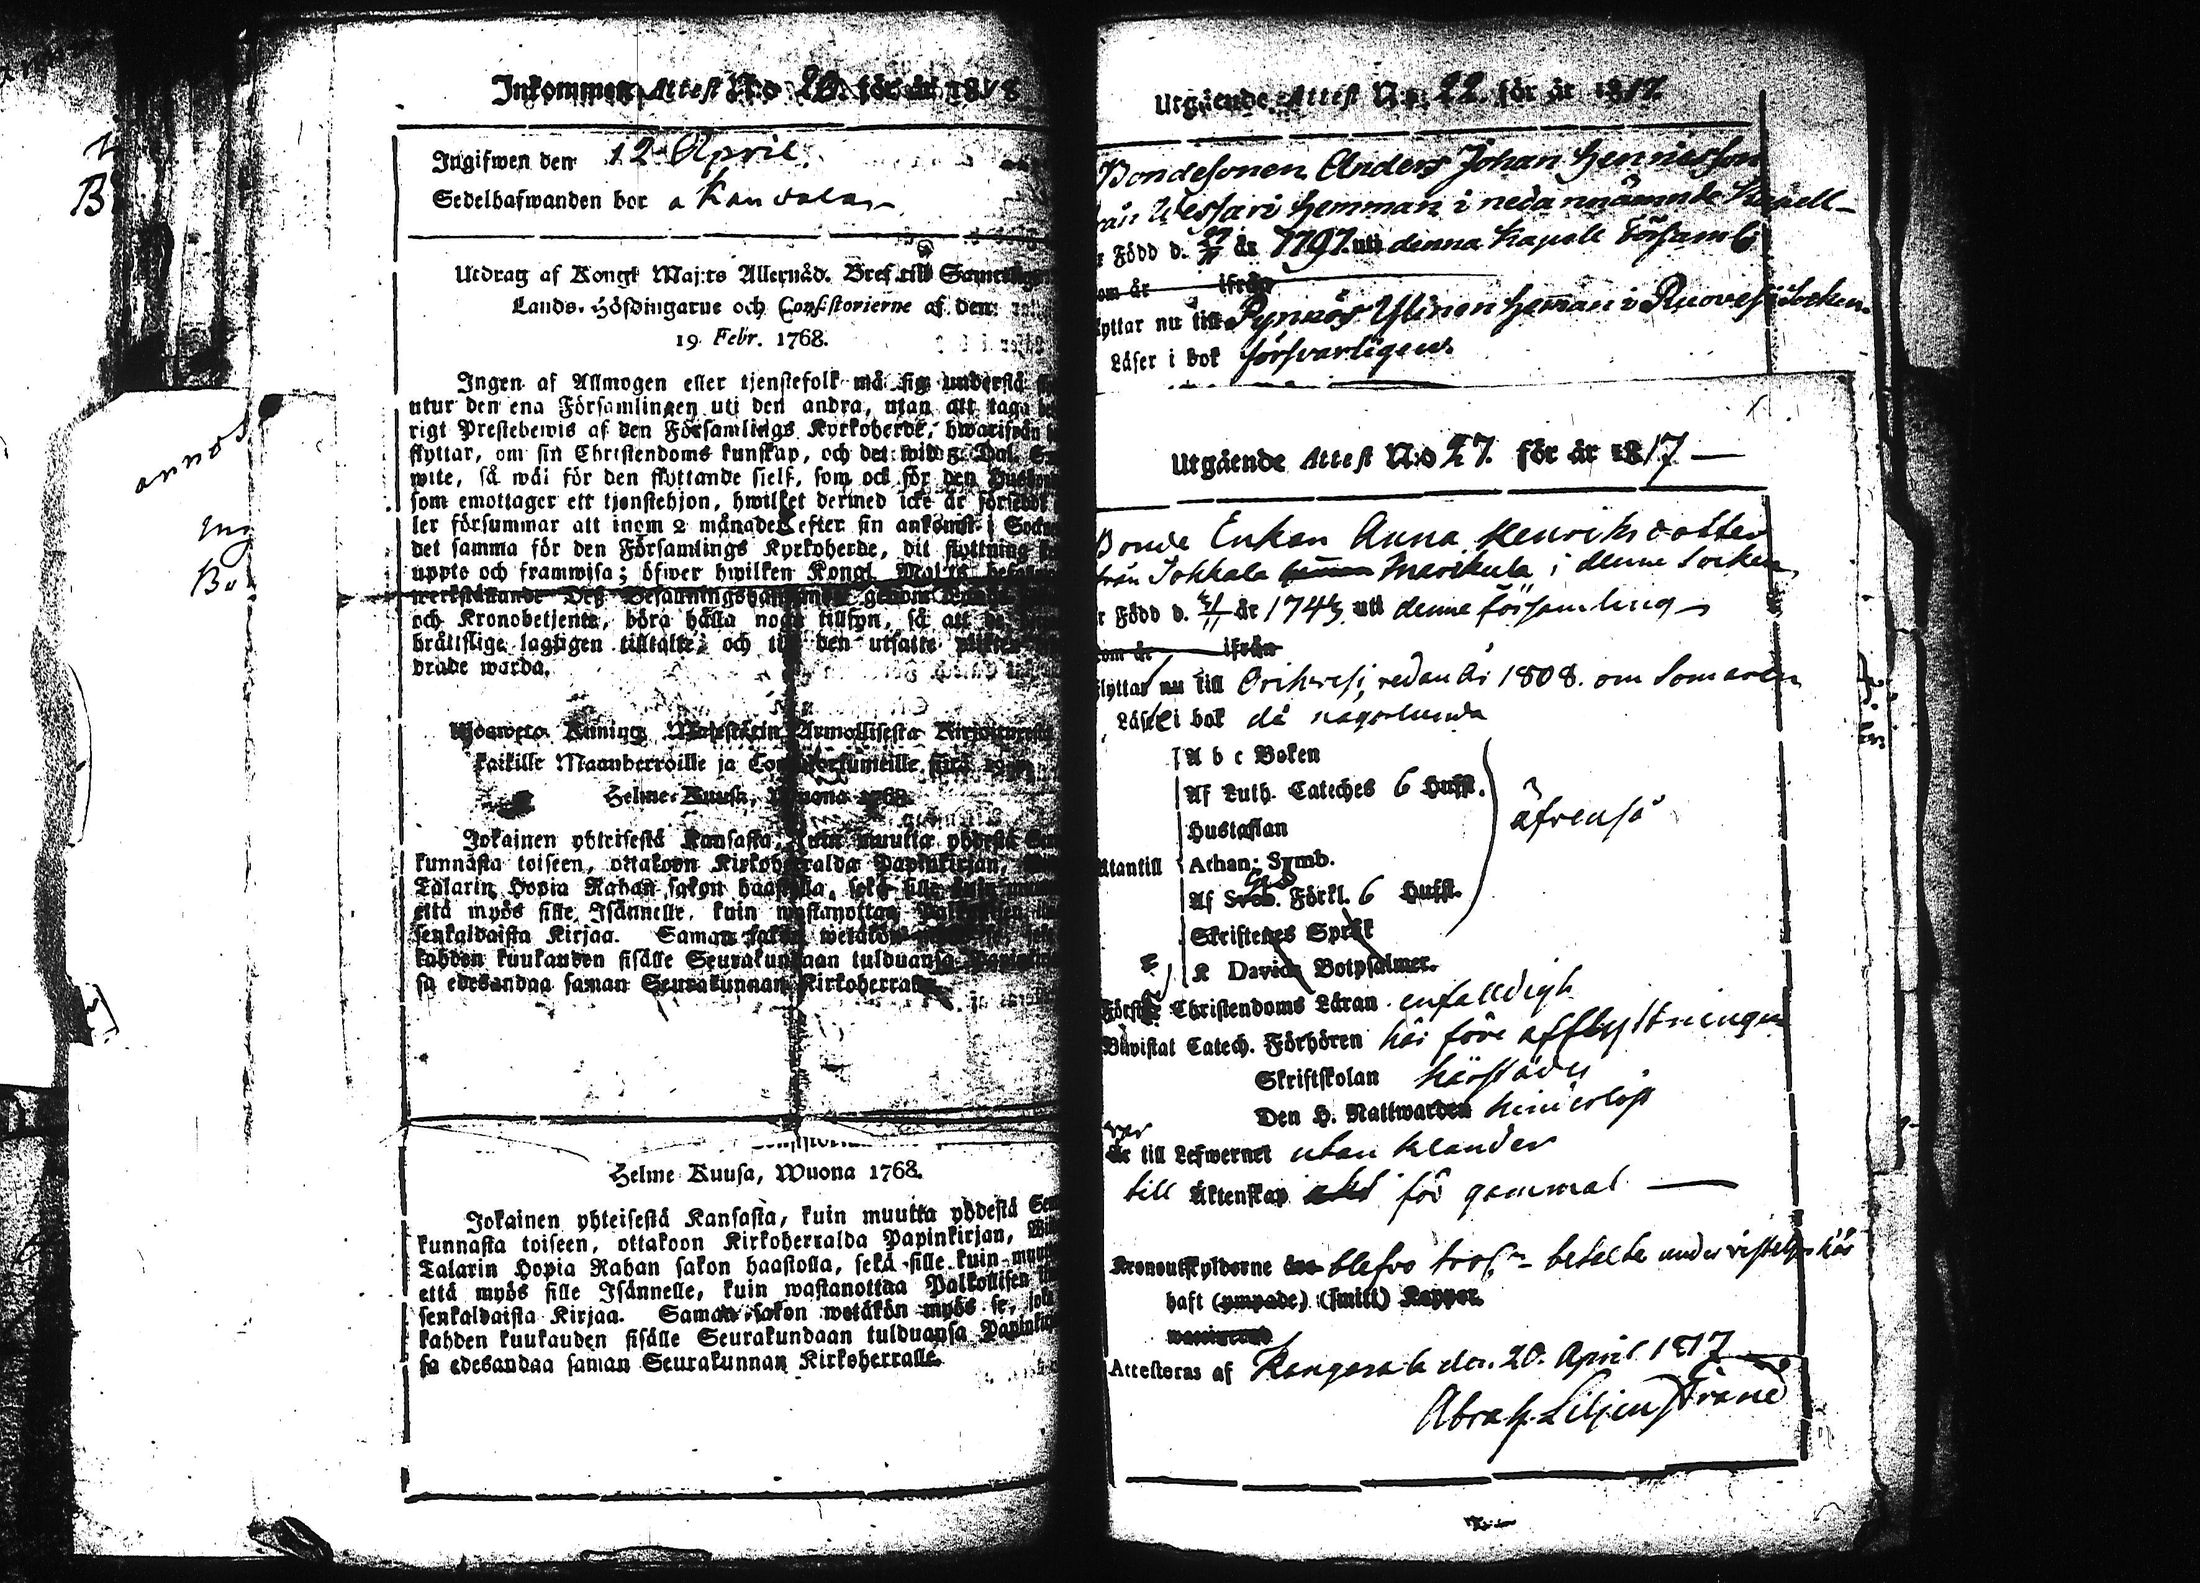 Inkommen Attest No 20. för år 1818
Ingifwen den 12 April.
Sedelhafwanden bor
Utdrag af Kongl Maj:ts Allernåd. Bref till Samtelige
Lands-Höfdingarne och Consistorierne af den
19 Febr. 1768.
Ingen af Allmogen eller tjenstefolk må sig understå
utur den ena Församlingen uti den andra, utan att taga
rigt Prestebewis af den Församlings Kyrkoherde, hwarifrån
flyttar, om sin Christendoms kunskap, och det wid 5 Dal. S
wite, så wäl för den flyttande sielf, som ock för den Husbon
som emottager ett tjenstehjon, hwilket dermed icke är försedt
ler försummar att inom 2 månader efter sin ankomst i Sock
det samma för den Församlings Kyrkoherde, dit flyttning
uppte och framwisa; öfwer hwilken Kongl. Maj:ts
werkställande Dess Befallningshafwande genom
och Kronobetjente, böra hålla noga tillsyn, så att de
bråttslige lagligen tilltalte, och till den utsatte plikten
drade warda.
Ulosweto Kuningz Majestätin Armollisesta Kirjoituxesta
kaikille Maanherroille ja Consistoriumeille, siitä 19
Helme-Kuusa, Wuona 1768.
Jokainen yhteisestä Kansasta, kuin muutta yhdestä Seu
kunnasta toiseen, ottakoon Kirkoherralda Papinkirjan,
Talarin Hopia Rahan sakon haastolla, sekä sille kuin muut
että myös sille Isännelle, kuin wastanottaa Palkollisen
senkaldaista Kirjaa. Saman sakon wetäkön
kahden kuukauden sisälle Seurakundaan tulduansa Papinkir
sa edesandaa saman Seurakunnan Kirkoherralle.
Helme Kuusa, Wuona 1768.
Jokainen yhteisestä Kansasta, kuin muutta yhdestä Seu
kunnasta toiseen, ottakoon Kirkoherralda Papinkirjan, Wii
Talarin Hopia Rahan sakon haastolla, sekä sille kuin muut
että myös sille Isännelle, kuin wastanottaa Palkollisen
senkaldaista Kirjaa. Saman sakon wetäkön myös se, joka
kahden kuukauden sisälle Seurakundaan tulduansa Papinkir
sa edesandaa saman Seurakunnan Kirkoherralle.
Utgående Attest No 22. för år 1817.
Bondesonen Anders Johan Henricsson
från Wessari Hemman i nedannämnde Kapell-
Född d. år 1797. uti denna Kapell Församl
om år ifrån
flyttar nu till Pynnös Ylinen heman i Ruovesi Socken.
Läser i bok försvarligen.
Utgående Attest No 27. för år 1817
Bonde Enkan Anna Henriksdotter
från Jokkala Marckula i denne Socken
r Född d. år 1743 uti denne församling
om år ifrån
flyttar nu till Orihvesi, redan år 1808. om Somaren
Läste i bok då någorlunda
A b c Boken
Af Luth. Cateches 6 Hufst.
Hustaflan
Utantill Athan: Symb. äfvenså
Af Förkl. 6 Hufst.
Skriftenes Språk
K Davids Botpsalmer.
Förstod Christendoms Läran enfalldigt
Biwistat Catech. Förhören här före afflyttningen
Skriftskolan härstädes
Den H. Nattwarden hinderlöst
var
är till Lefwernet utan klander
till Äktenskap för gammal
Kronoutskylderne blefvo betalte under vistelsen här
haft (ympade) (smitt) Koppor.
Attesteras af Kangasala den. 20. April 1817
Abrah. Liljenstrand